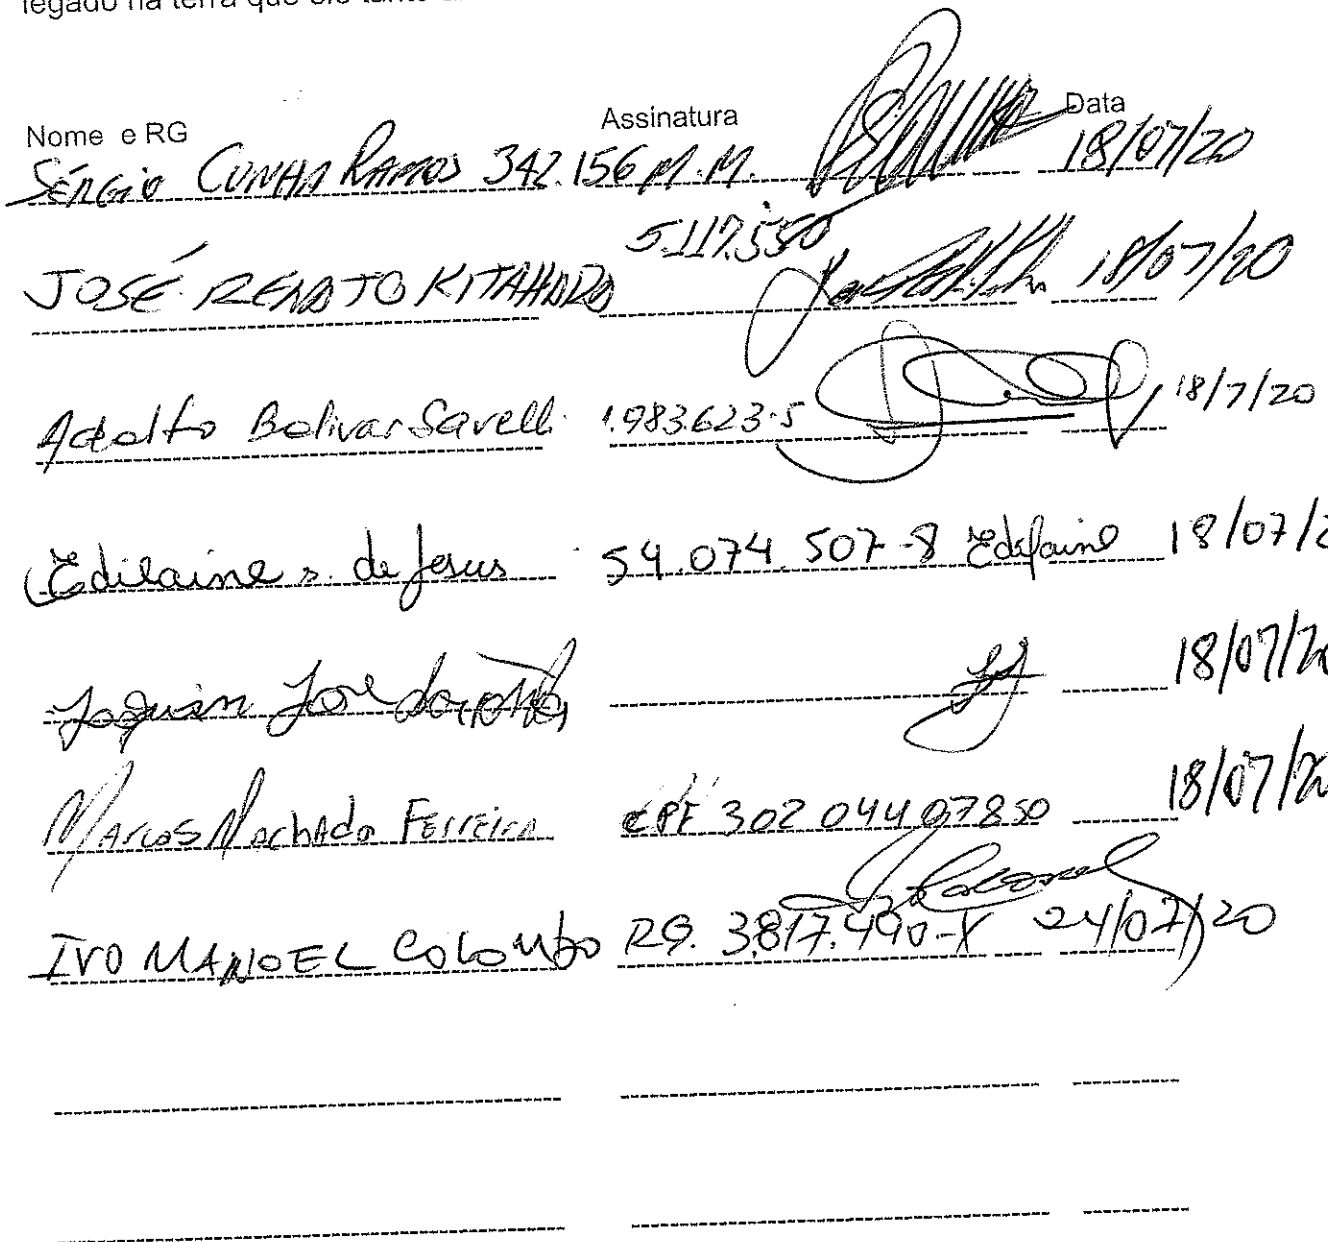 legado na terra que ele tanto
Nome e RG Assinatura Data
SÉRGIO CUNHA RAMOS 342.156 M.M. 18/07/20
JOSÉ RENATO KITAHARA 5.117.550 18/07/20
Adolfo Bolivar Savelli 1.983.623-5 18/7/20
Edilaine s. de Jesus 54.074.507-8 Edilaine 18/07/2
Joaquim José 18/07/20
Marcos Machado Ferreira CPF 302 044 078 50 18/07/20
IVO MANOEL COLOMBO RG. 3.817.490-X 24/07/20